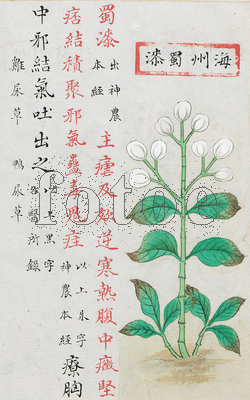 海州蜀漆
蜀漆 出神農本經 主瘧及欬逆寒熱腹中癥堅
痞結積聚邪氣蠱毒鬼疰 以上朱字神農本經 療胸
中邪結氣吐出之 以上黑字名醫所錄
雞尿草 鴨尿草
fotoe